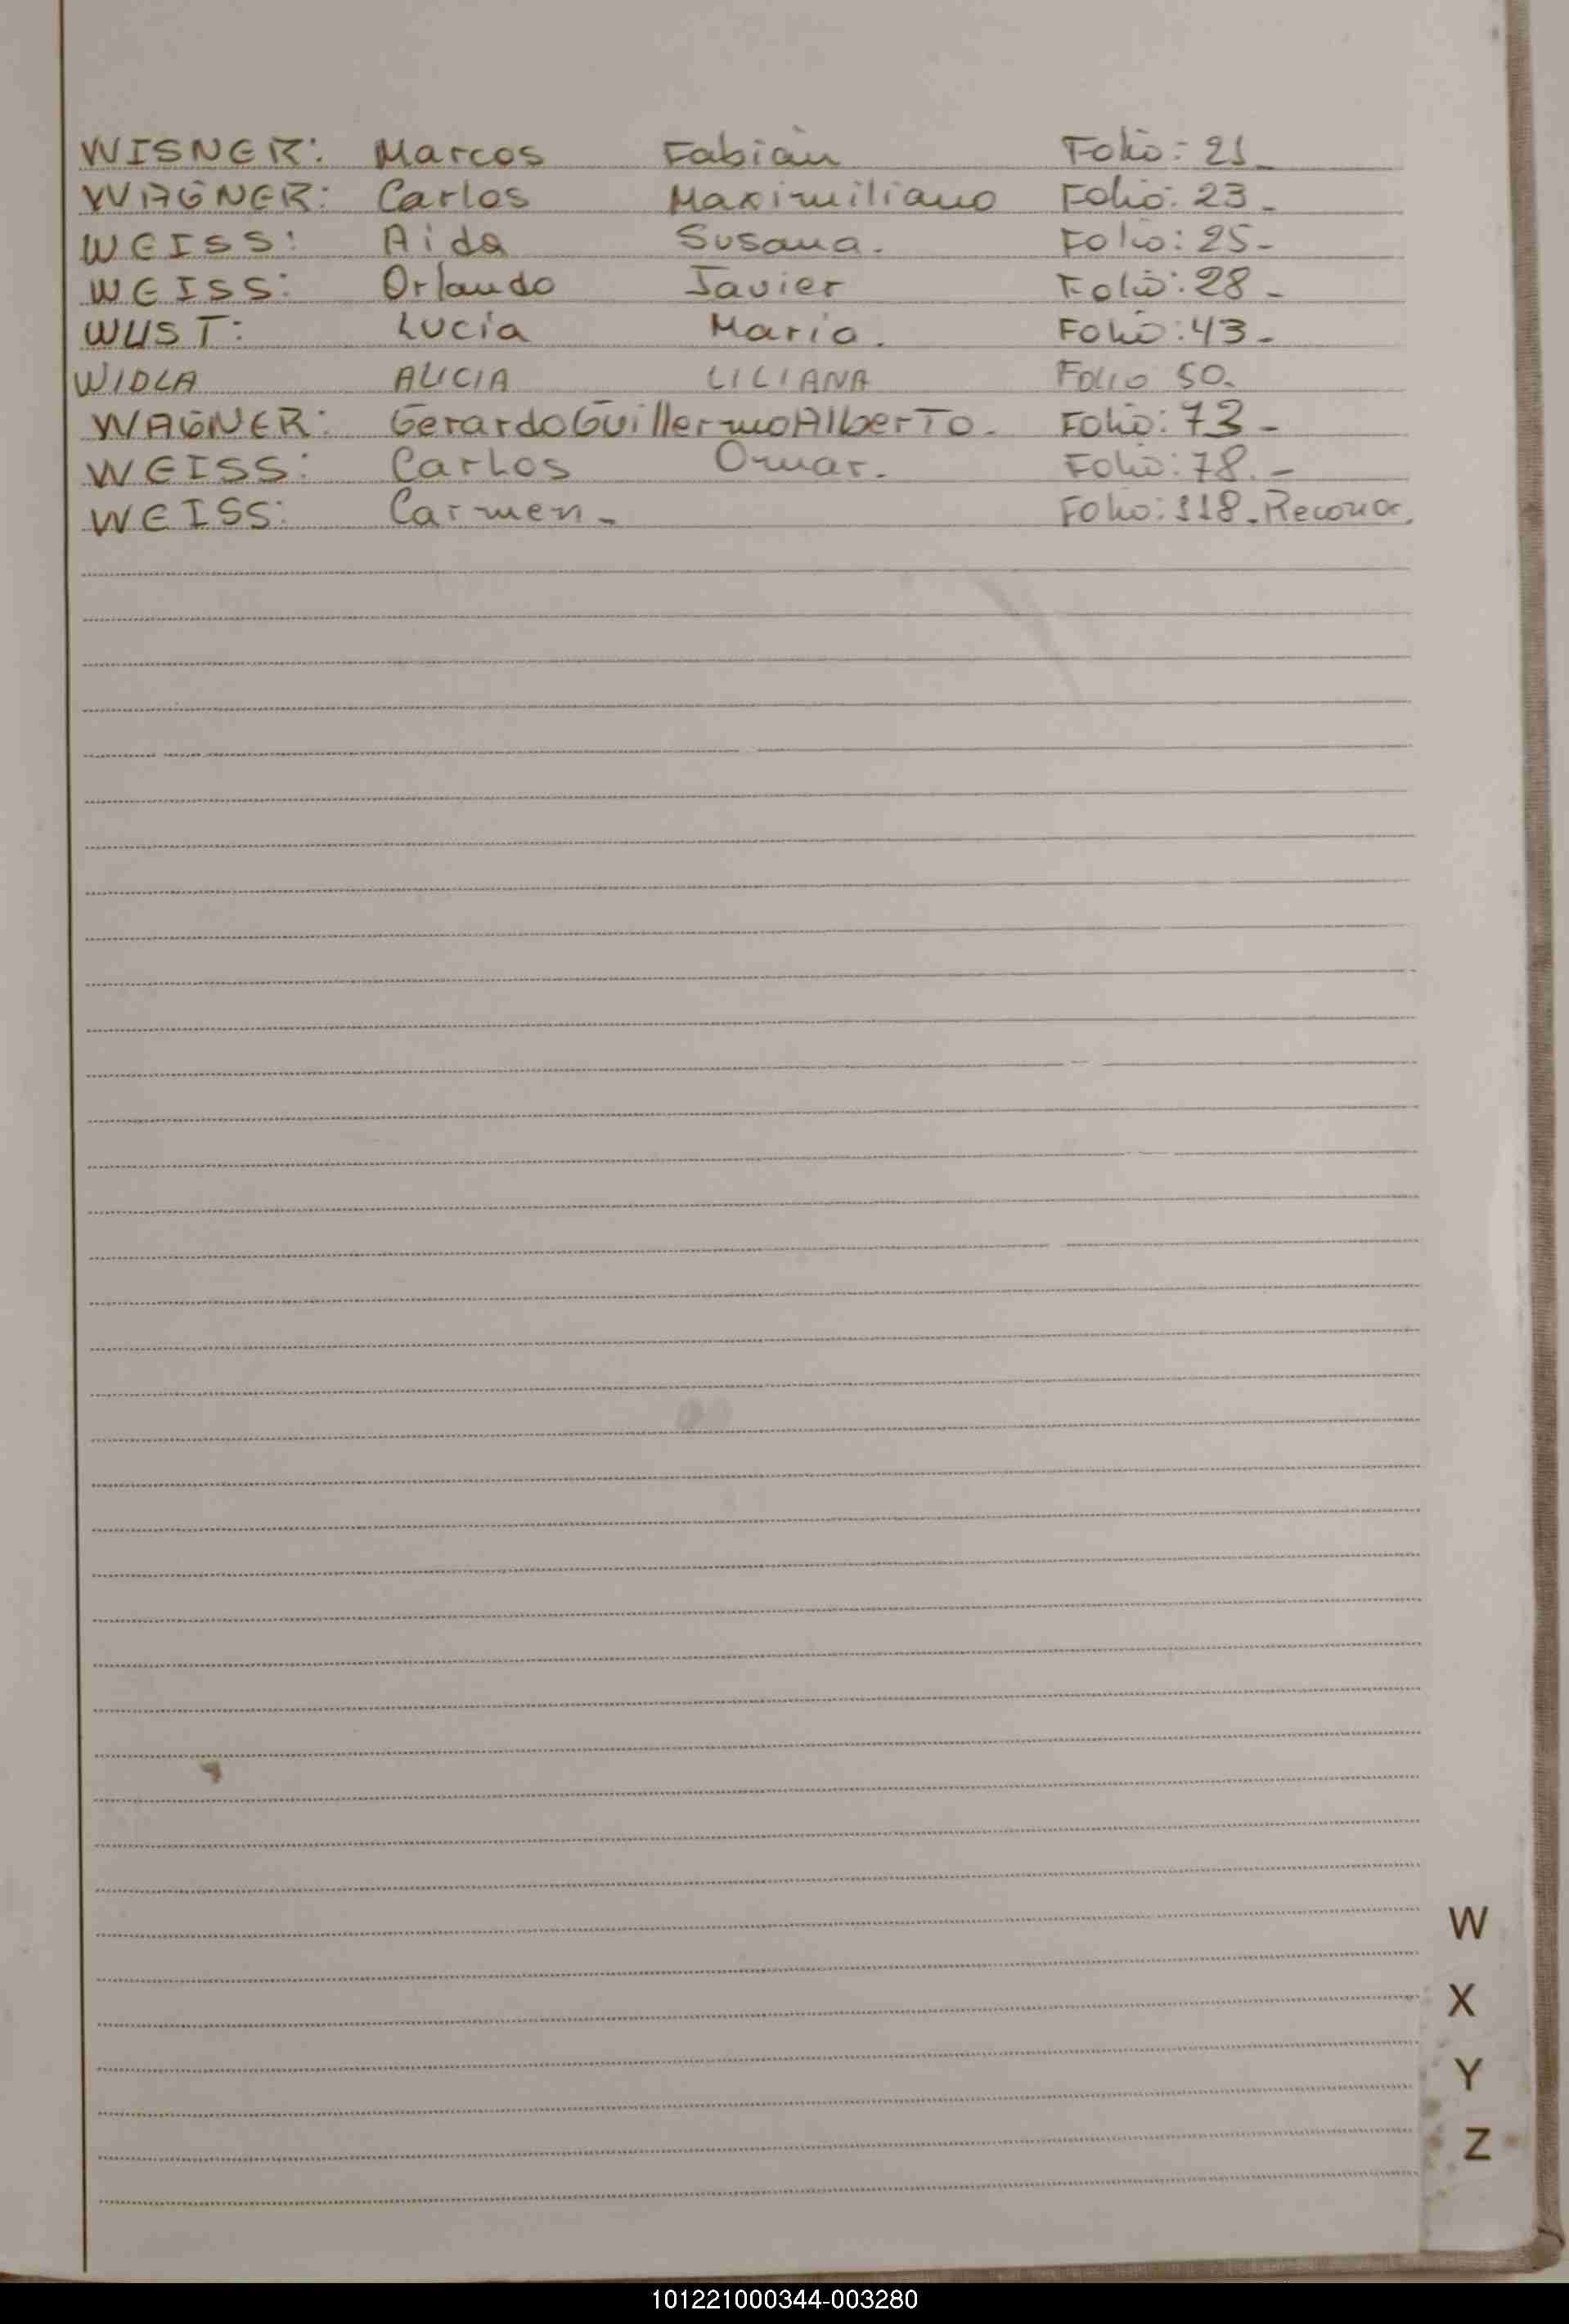 WISNER: Marcos Fabián Folio: 21_
WAGNER: Carlos Maximiliano Folio: 23_
WEISS: Aida Susana. Folio: 25_
WEISS: Orlando Javier Folio: 28_
WUST: Lucía María. Folio: 43_
WIDLA ALICIA LILIANA FOLIO 50.
WAGNER: Gerardo Guillermo Alberto_ Folio: 73_
WEISS: Carlos Omar. Folio: 78._
WEISS: Carmen_ Folio: 118_Reconoc.
W
X
Y
Z
101221000344-003280